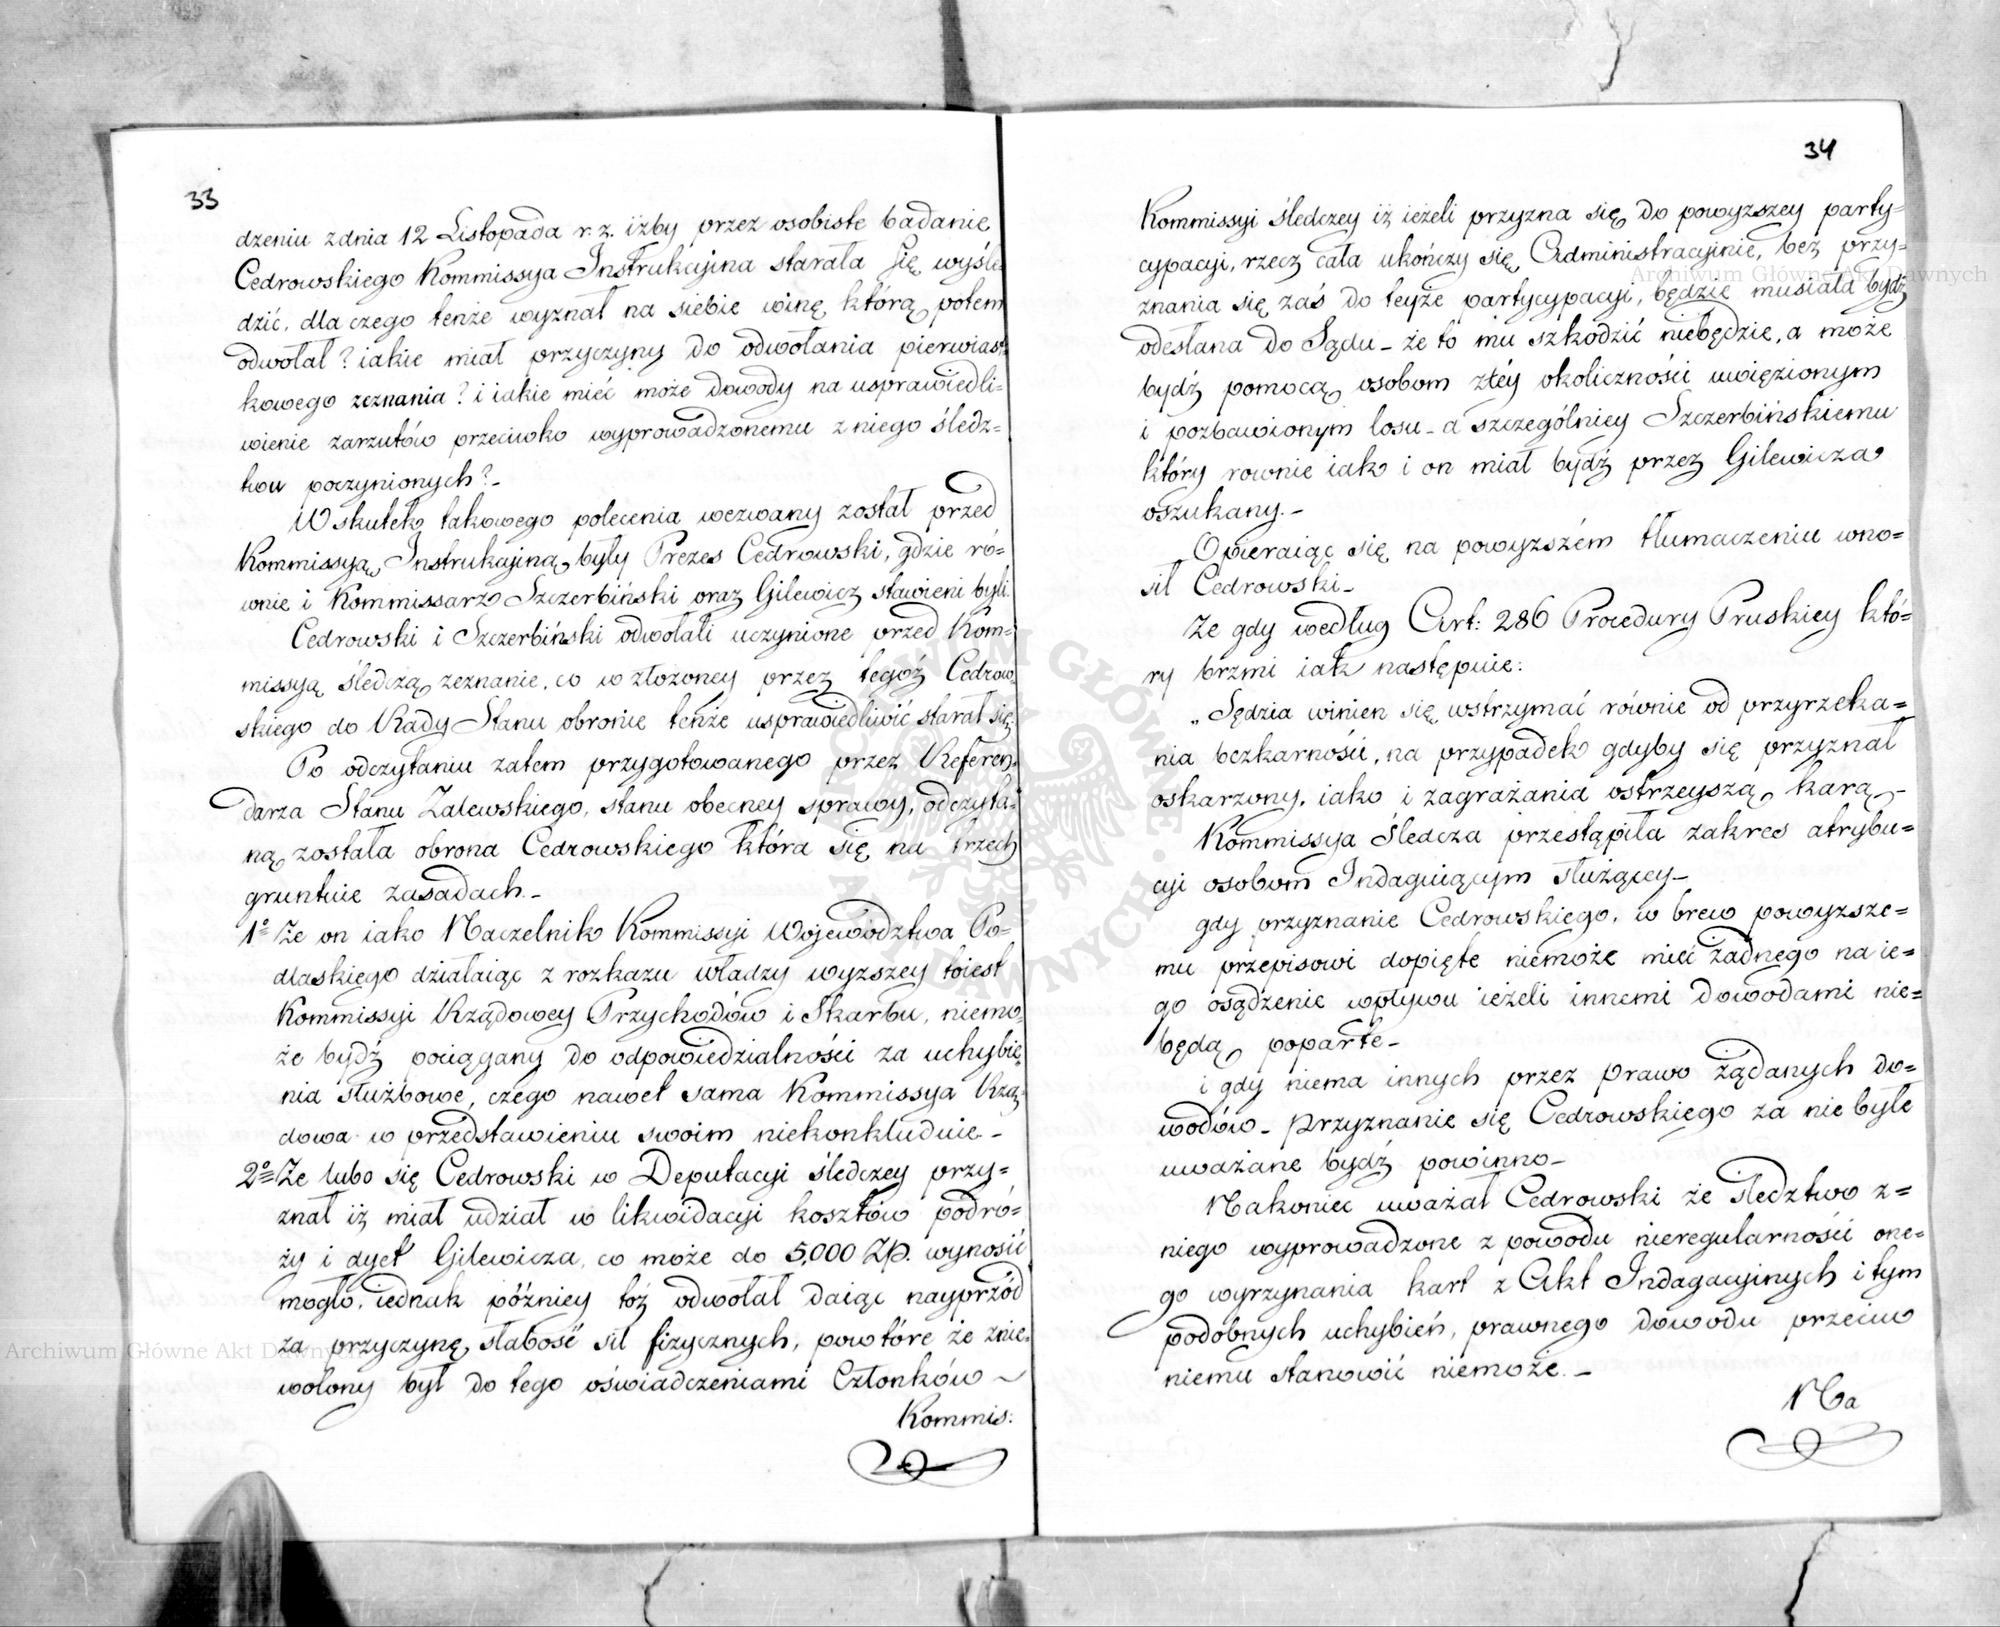 33
dzeniu z dnia 12 Listopada r. z. iżby przez osobiste badanie
Cedrowskiego Kommissya Instrukcyina starała Się wyśle-
dzić, dla czego tenże wyznał na siebie winę którą potem
odwołał? iakie miał przyczyny do odwołania pierwiast-
kowego zeznania? i iakie mieć może dowody na usprawiedli=
wienie zarzutów przeciwko wyprowadzonemu z niego śledz=
twu poczynionych?_
W skutek takowego polecenia wezwany został przed
Kommissyą Instrukcyiną były Prezes Cedrowski, gdzie ró=
wnie i Kommissarz Szczerbiński oraz Gilewicz stawieni byli.
Cedrowski i Szczerbiński odwołali uczynione przed Kom=
missyą śledczą zeznanie, co w złożoney przez tegoż Cedrow
skiego do Rady Stanu obronie tenże usprawiedliwić starał się.
Po odczytaniu zatem przygotowanego przez Referen=
darza Stanu Zalewskiego, stanu obecney sprawy, odczyta=
ną została obrona Cedrowskiego która się na trzech
gruntuie zasadach._
1º Że on iako Naczelnik Kommissyi Województwa Po=
dlaskiego działaiąc z rozkazu władzy wyzszey toiest
Kommissyi Rządowey Przychodów i Skarbu, niemo=
że bydź pociągany do odpowiedzialności za uchybie=
nia służbowe, czego nawet sama Kommissya Rzą=
dowa w przedstawieniu swoim niekonkluduie_
2º Że lubo się Cedrowski w Deputacyi śledczey przy=
znał iż miał udział w likwidacyi kosztów podró=
ży i dyet Gilewicza, co może do 5,000 Zp. wynosić
mogło, iednak później toż odwołał daiąc nayprzód
za przyczynę słabość sił fizycznych, powtóre że znie=
wolony był do tego oświadczeniami Członków ~
Kommis:
34
Kommissyi śledczey iż ieżeli przyzna się do powyzszey party=
cypacyi, rzecz cała ukończy się Administracyinie, bez przy=
znania się zaś do teyże partycypacyi, będzie musiała bydź
odesłana do Sądu_ że to mu szkodzić niebędzie, a może
bydź pomocą osobom złéy okoliczności uwięzionym
i pozbawionym losu_ a szczególniey Szczerbińskiemu
który rownie iak i on miał bydź przez Gilewicza
oszukany._
Opieraiąc się na powyzszém tłumaczeniu wno=
sił Cedrowski_
Ze gdy według Art: 286 Procedury Pruskiey któ=
ry brzmi iak następuie:
„ Sędzia winien się wstrzymać równie od przyrzeka=
nia bezkarności, na przypadek gdyby się przyznał
oskarzony, iako i zagrażania ostrzeyszą karą_
Kommissya Śledcza przestąpiła zakres atrybu=
cyi osobom Indaguiącym służącey_
gdy przyznanie Cedrowskiego, w brew powyzsze=
mu przepisowi dopięte niemoże mieć żadnego na ie=
go osądzenie wpływu ieżeli innemi dowodami nie=
będą poparte_
i gdy niema innych przez Prawo żądanych do=
wodów_ Przyznanie się Cedrowskiego za nie byłe
uważane bydź powinno_
Nakoniec uważał Cedrowski że śledztwo z=
niego wyprowadzone z powodu nieregularności one=
go wyrzynania kart z Akt Indagacyinych i tym
podobnych uchybień, prawnego dowodu przeciw
niemu stanowić niemoże._
Na
Archiwum Główne Akt Dawnych
Archiwum Główne Akt Dawnych
ARCHIWUM GŁÓWNE AKT DAWNYCH